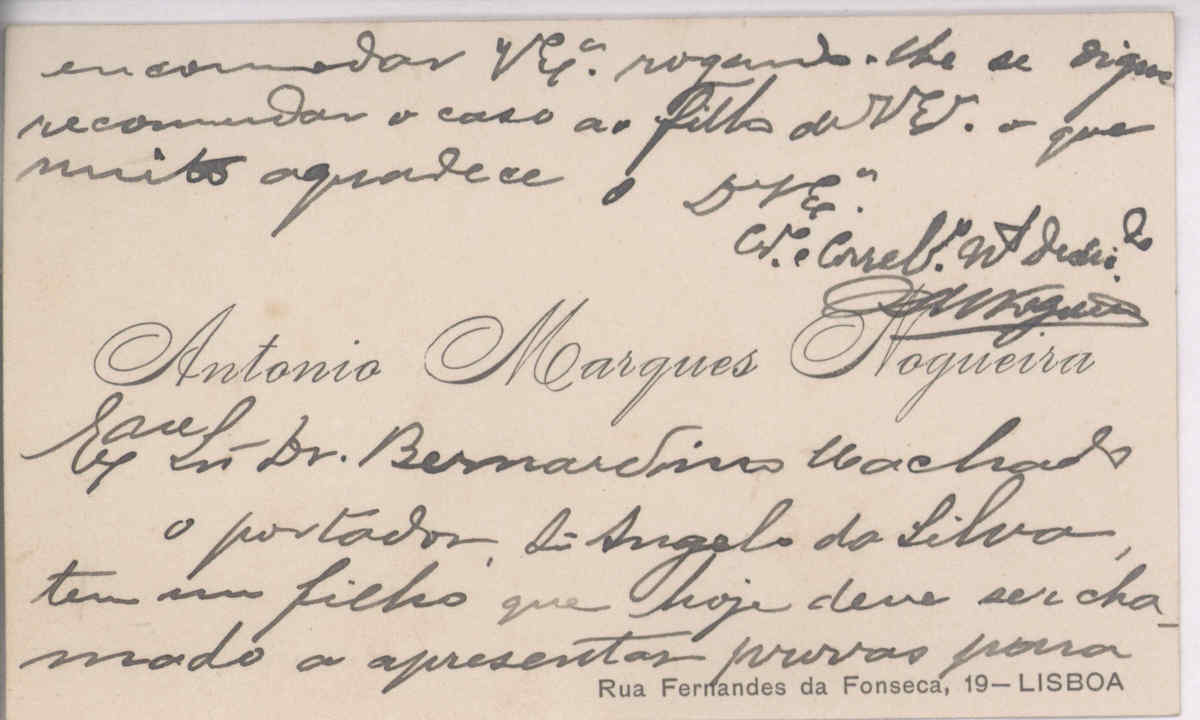 encomodar V Ex.ª rogando-lhe se digne
recomendar o caso ao filho de V Ex.ª o que
muito agradece o De V Ex.ª
Corr.º
Antonio Marques Nogueira
Sr. Dr. Bernardino Machado
o portador, Sr. Angelo da Silva,
tem um filho que hoje deve ser cha-
mado a apresentar provas para
Rua Fernandes da Fonseca, 19—LISBOA